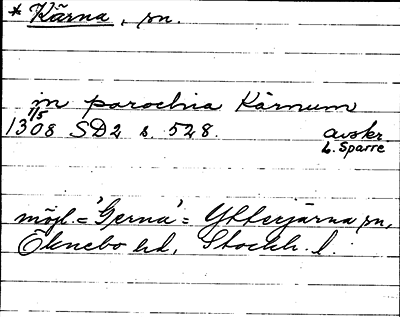 * Kärna, sn.
in parochia Kärnum
1/5
1308 SD2 s. 528. avskr
L. Sparre
möjl. = 'Gerna' = Ytterjärna sn,
Öknebo hd, Stockh. l.